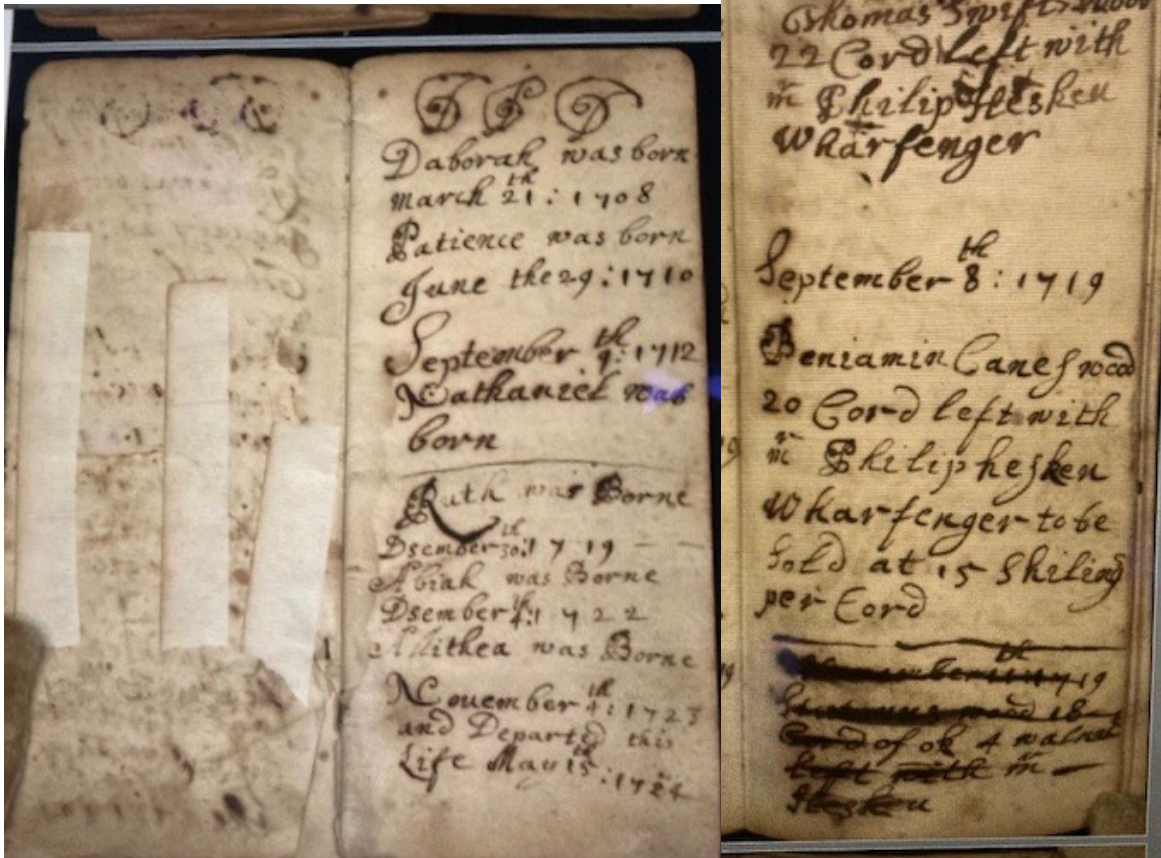 Daborah was born
march 21th : 1708
Patience was born
June the 29 : 1710
September 9th : 1712
Nathaniel was
born
Ruth was Borne
Dsember 30th 1719
Abiah was Borne
Dsember 4th 1722
Alithea was Borne
November 4th : 1723
and Departed this
Life May 15th : 1724
Thomas Swifts wood
22 Cord left with
mr Philip Hesken
Wharfenger
September 8th : 1719
Beniamin Canes wood
20 Cord left with
mr Philip hesken
Wharfenger to be
sold at 15 Shiling
per Cord
th 1719
wood 18
Cord of ok 4 walnut
left with mr
Hesken